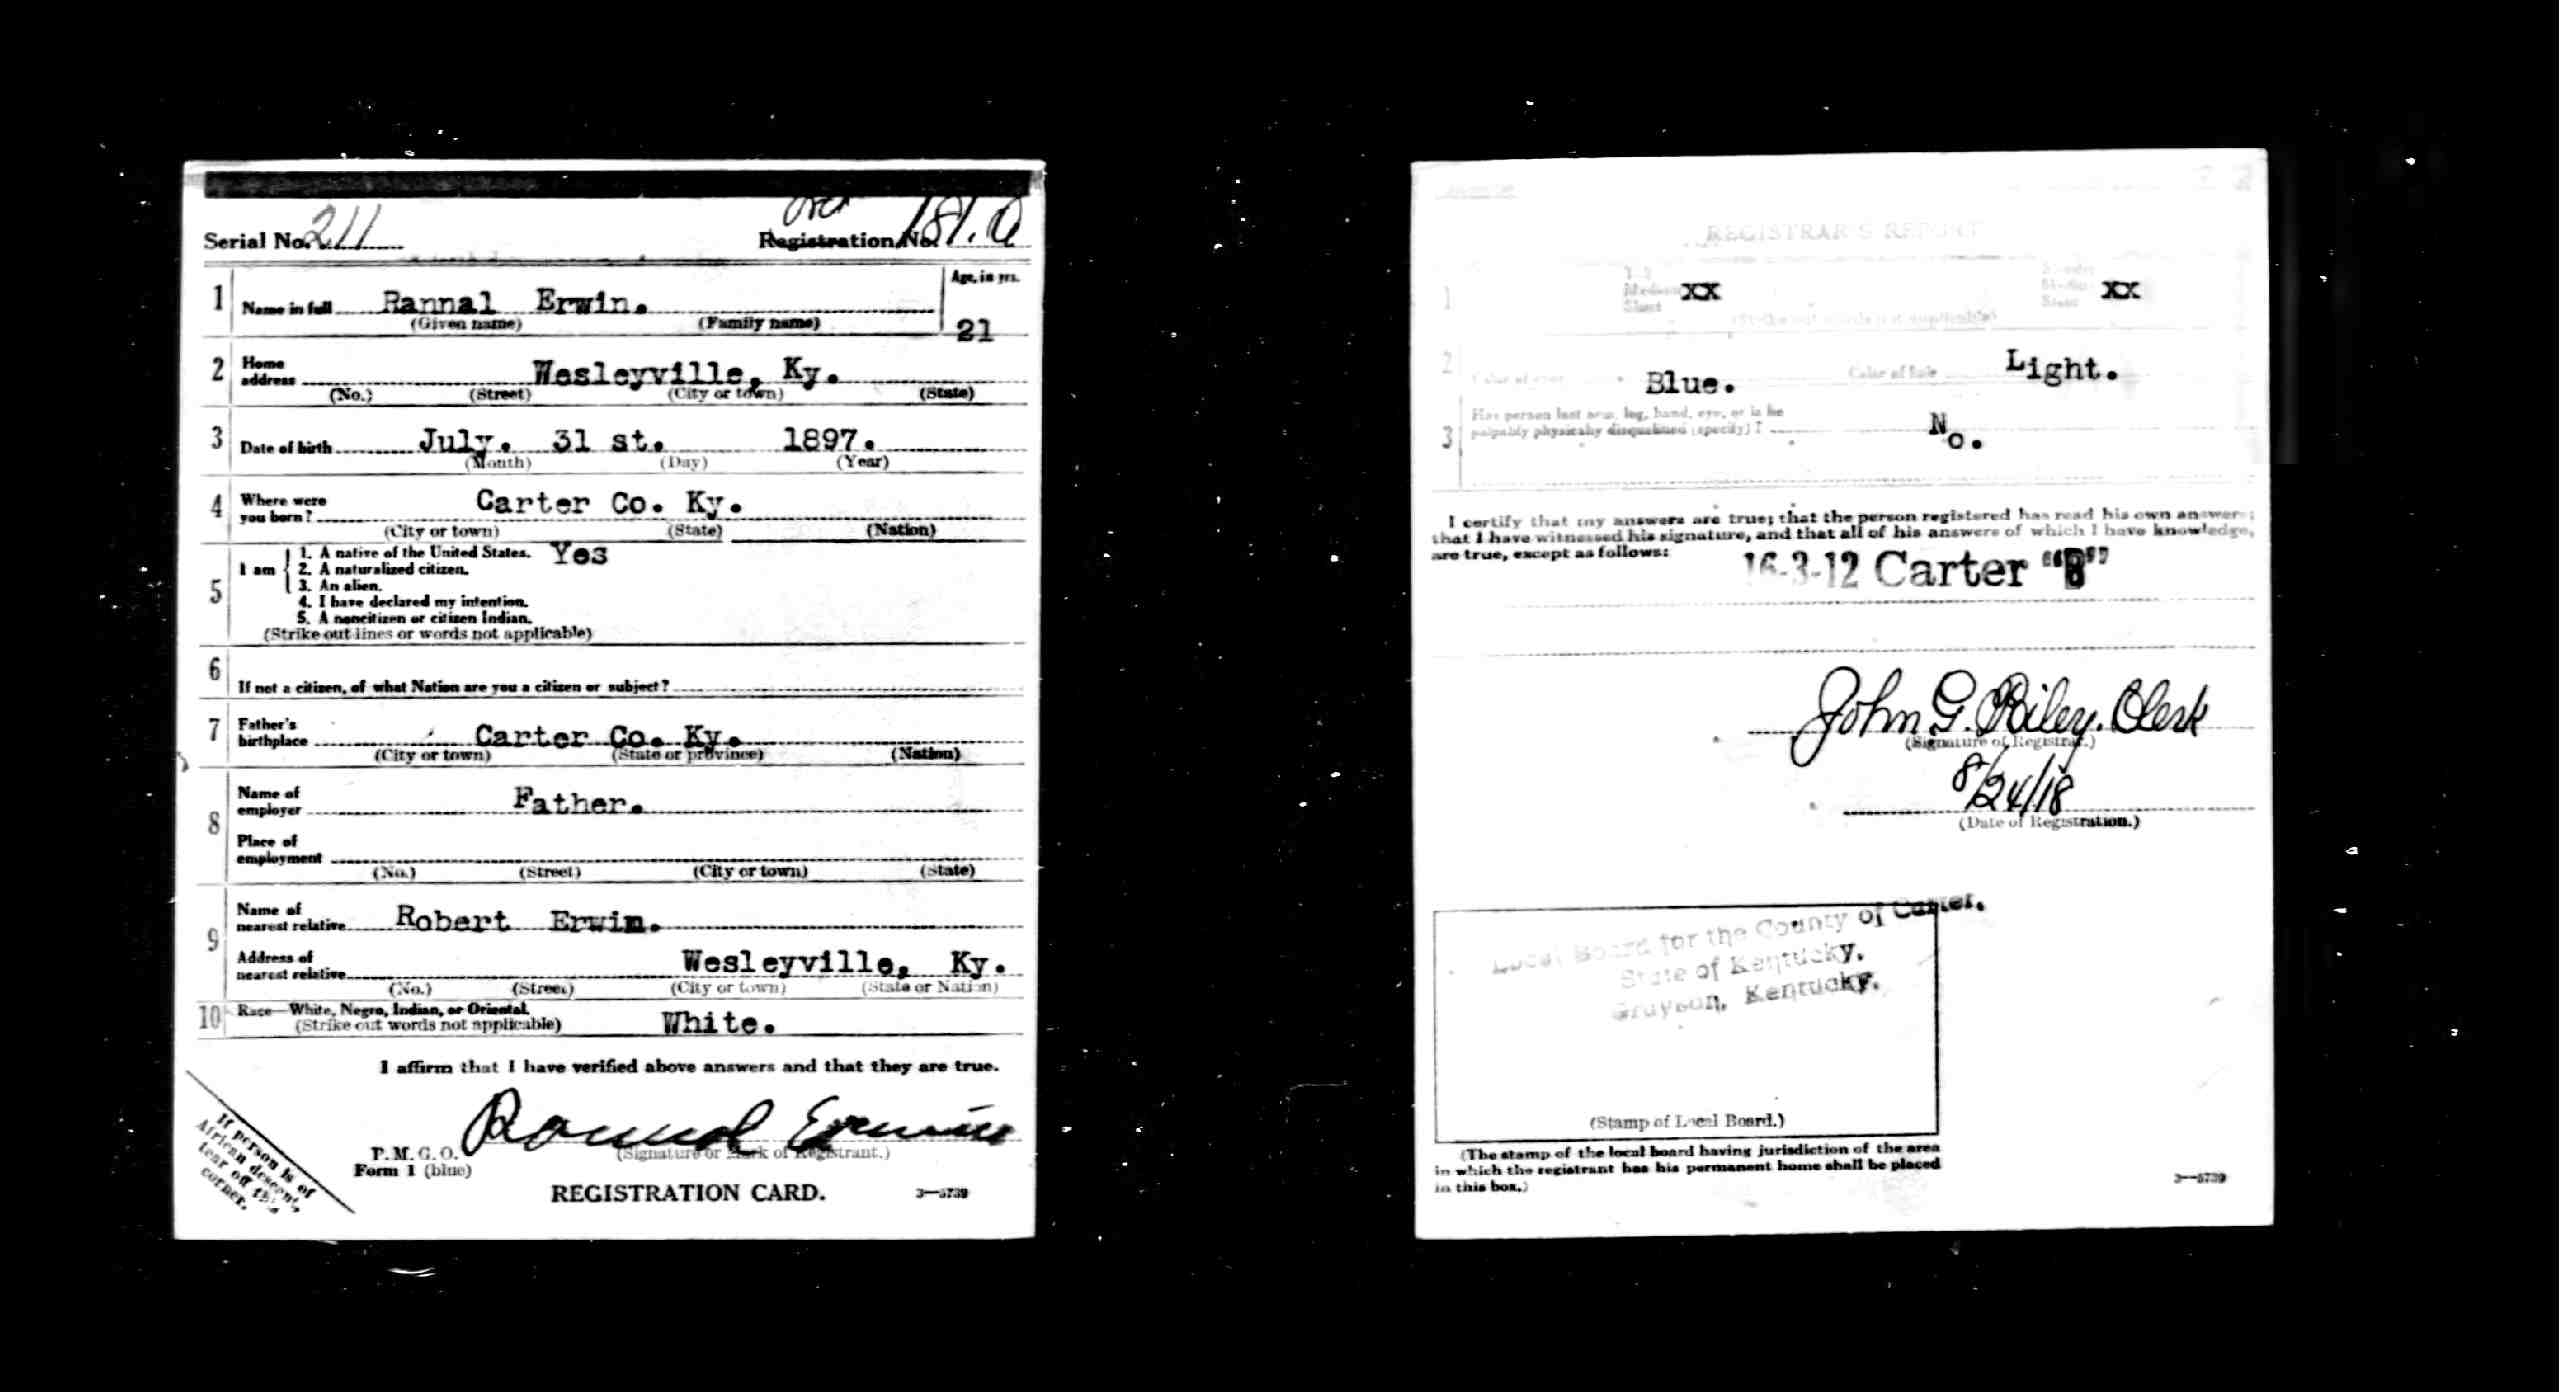 Serial No. 211 Registration No. 181. A
Age, in yrs.
1 Name in full Rannal Erwin.
(Given name) (Family name)
21
2 Home address Wesleyville, Ky.
(No.) (Street) (City or town) (State)
3 Date of birth July. 31 st. 1897.
(Month) (Day) (Year)
4 Where were you born? Carter Co. Ky.
(City or town) (State) (Nation)
5 I am
1. A native of the United States. Yes
2. A naturalized citizen.
3. An alien.
4. I have declared my intention.
5. A noncitizen or citizen Indian.
(Strike out lines or words not applicable)
6 If not a citizen, of what Nation are you a citizen or subject?
7 Father's birthplace Carter Co. Ky.
(City or town) (State or province) (Nation)
8 Name of employer Father.
Place of employment
(No.) (Street) (City or town) (State)
9 Name of nearest relative Robert Erwin.
Address of nearest relative Wesleyville, Ky.
(No.) (Street) (City or town) (State or Nation)
10 Race—White, Negro, Indian, or Oriental.
(Strike out words not applicable) White.
I affirm that I have verified above answers and that they are true.
Rannal Erwin
(Signature or Mark of Registrant.)
P. M. G. O.
Form 1 (blue)
REGISTRATION CARD. 3—5739
If person is of
African descent,
tear off this
corner.
REGISTRAR'S REPORT
1 Medium xx Slender xx
Short Stout
(Strike out words not applicable)
2 Color of eyes Blue. Color of hair Light.
3 Has person lost arm, leg, hand, eye, or is he
palpably physically disqualified (specify)? No.
I certify that my answers are true; that the person registered has read his own answers;
that I have witnessed his signature, and that all of his answers of which I have knowledge,
are true, except as follows:
16-3-12 Carter "B"
John G. Riley, Clerk
(Signature of Registrar.)
8/24/18
(Date of Registration.)
Local Board for the County of Carter.
State of Kentucky.
Grayson, Kentucky.
(Stamp of Local Board.)
(The stamp of the local board having jurisdiction of the area
in which the registrant has his permanent home shall be placed
in this box.)
3—5739